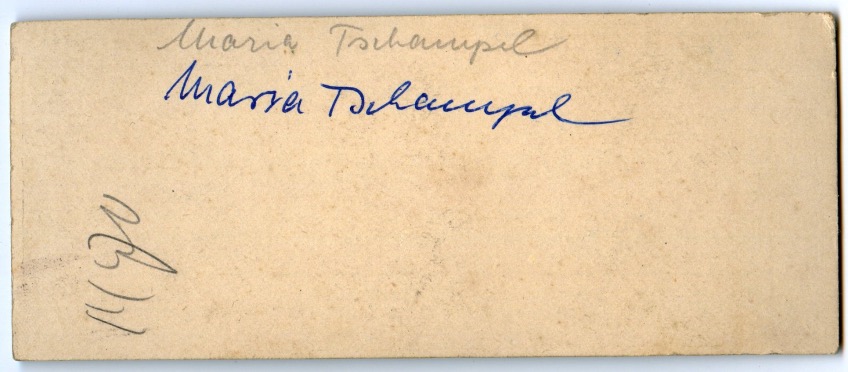 Maria Tschampel
Maria Tschampel